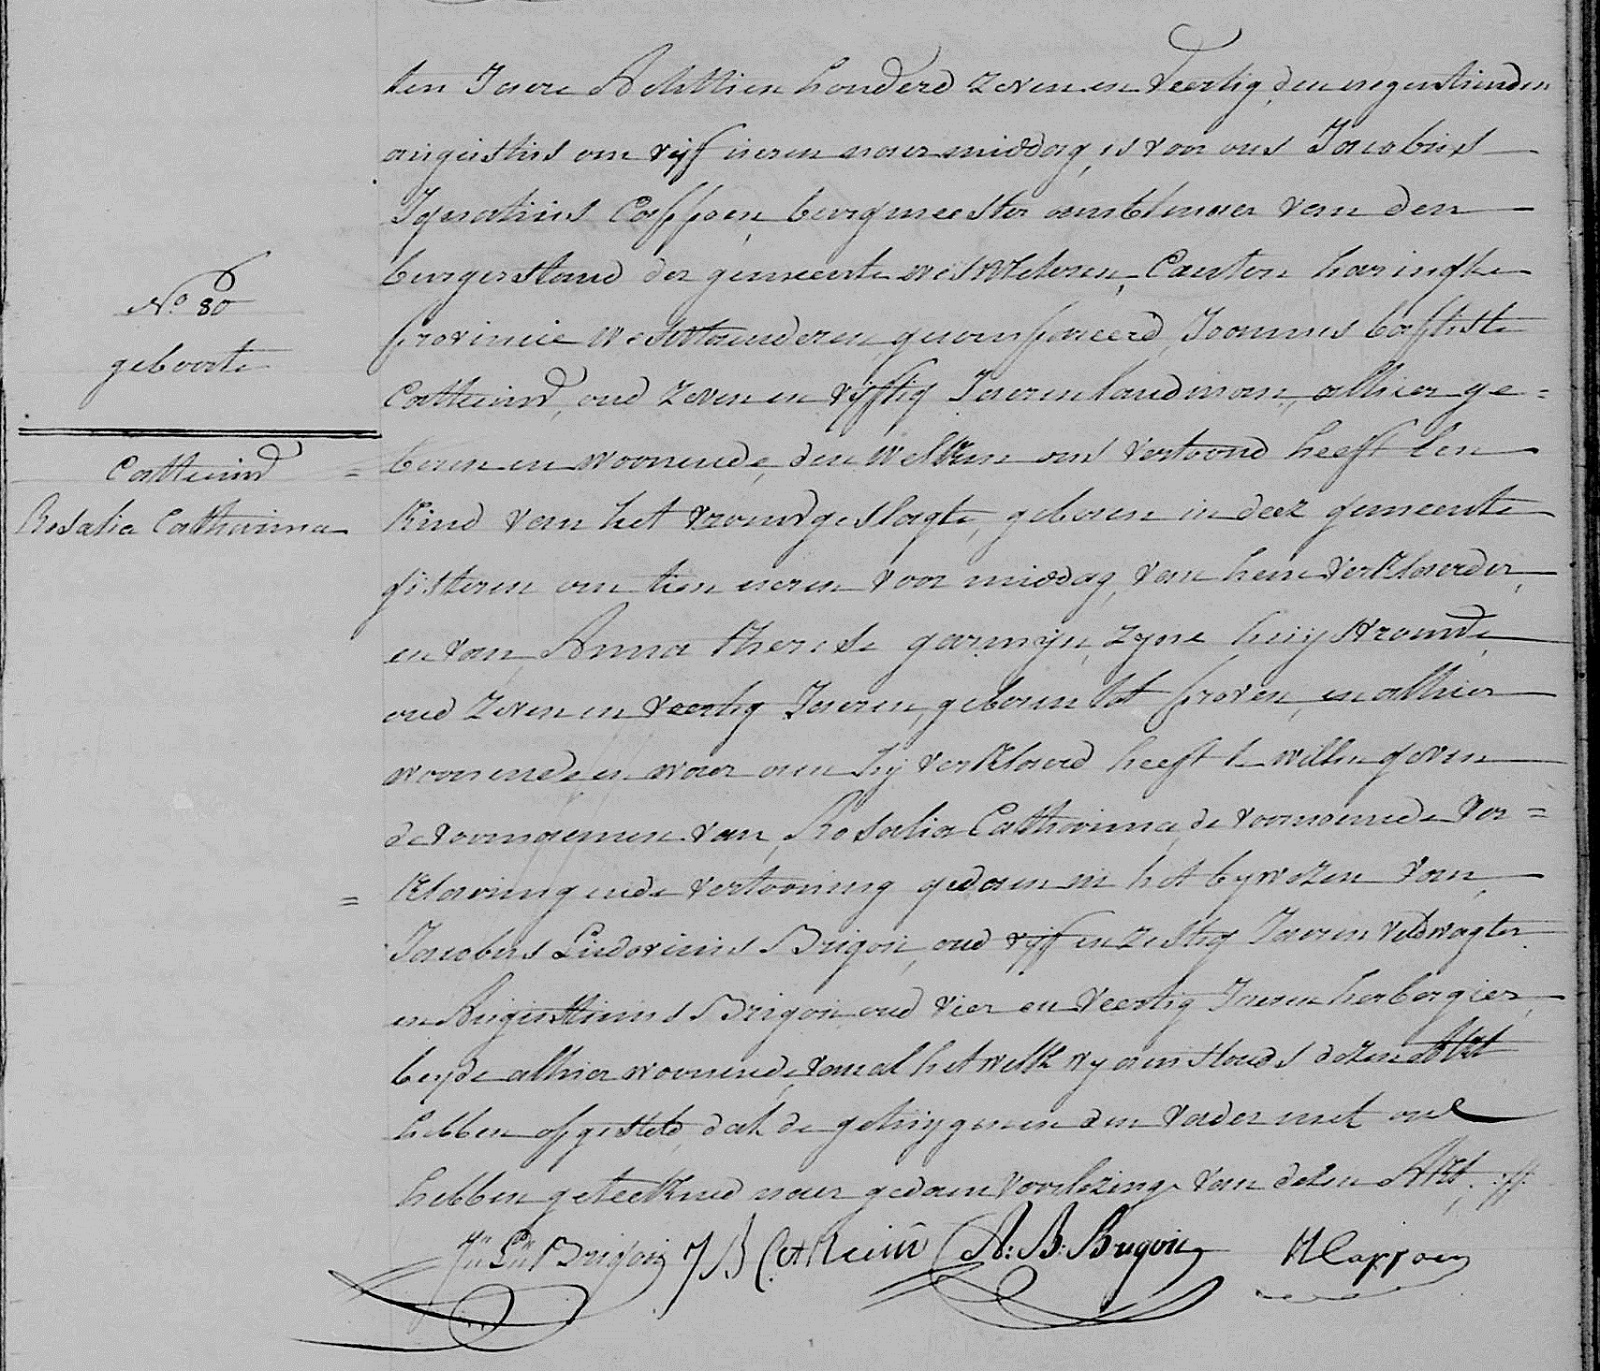 ten Jaere Achttien honderd zeven en veertig, den negenthienden
augustus om vyf ueren naer middag, is voor ons Jacobus
Ignatius Cappoen, burgmeester amtenaer van den
burgerstand der gemeente westvleteren, Canton haringhe
provincie Westvlaenderen, gecompareerd, Joannes baptiste
Catteeuw, oud zeven en vyftig Jaeren landman, alhier ge=
No. 80
geboorte
boren en woonende, den welken ons vertoond heeft een
Catteeuw
Rosalia Catharina
kind van het vrouwgeslagte, geboren in deez gemeente
gisteren om tien ueren voor middag, van hem verklaerder,
en van Anna Therese garmyn, zyne huysvrouwe,
oud zeven en veertig Jaeren, geboren tot proven, en alhier
woonende en waer aen hy verklaerd heeft te willen geven
de voornaemen van Rosalia Catharina, de voornoemde ver=
= klaering ende vertooning gedaen in het bywezen van
Jacobus Ludovicus Brigou, oud vyf en zestig Jaeren veldwagter
en Augustinus Brigou oud vier en veertig Jaeren herbergier,
beyde alhier woonende, van al het welk wy aenstonds dezen akt
hebben opgesteld, dat de getuygen en den vader met ons
hebben geteekend naer gedaen voorlezinge van dezen Akt.
J B Catteeuw A: B: Brigou Cappoen